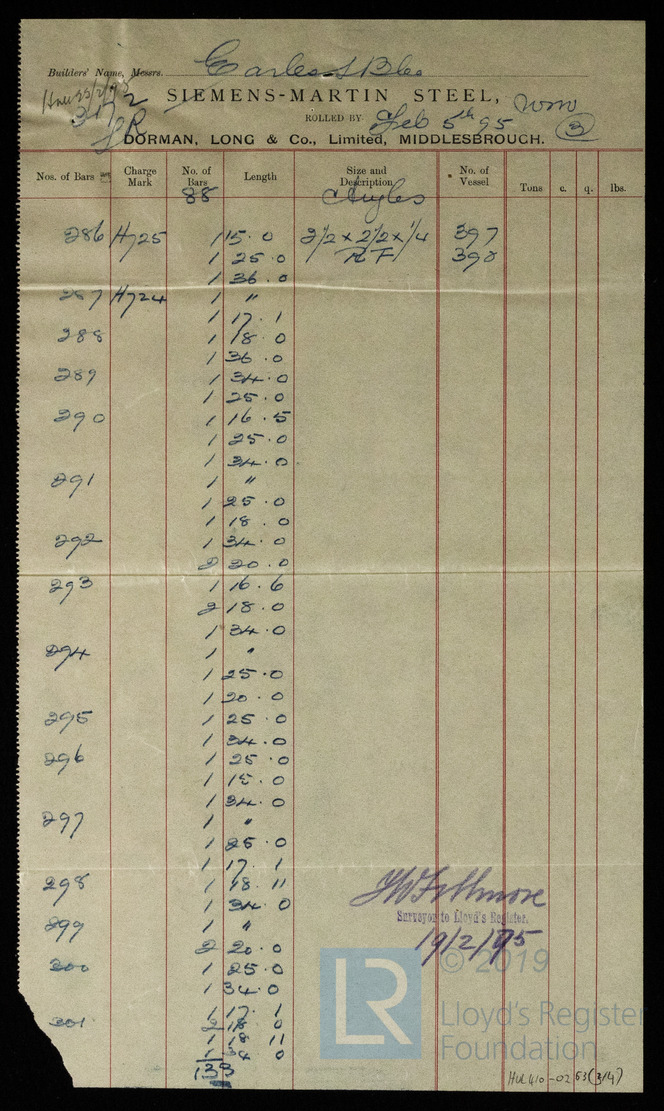 Builders' Name, Messrs. Earles S Bleo
3172
SIEMENS-MARTIN STEEL,
ROLLED BY Feb 5th 95 3
DORMAN, LONG & Co., Limited, MIDDLESBROUGH.
Nos. of Bars Charge Mark No. of Bars Length Size and Description No. of Vessel Tons c. q. lbs.
88 Angles
286 H725 1 15.0 2 1/2 x 2 1/2 x 1/4 397
1 25.0 398
1 36.0
287 H724 1 "
1 17.1
288 1 18.0
1 36.0
289 1 34.0
1 25.0
290 1 16.5
1 25.0
1 34.0
291 1 "
1 25.0
1 18.0
292 1 34.0
2 20.0
293 1 16.6
2 18.0
1 34.0
294 1 "
1 25.0
1 20.0
295 1 25.0
1 34.0
296 1 25.0
1 15.0
1 34.0
297 1 "
1 25.0
1 17.1
298 1 18.11
1 34.0
299 1 "
2 20.0
300 1 25.0
1 34.0
1 17.1
301 2 18.0
1 18 11
1 34 0
133
JW Fillmore
Surveyor to Lloyd's Register.
19/2/95
© 2019
LR
Lloyd's Register
Foundation
HUL410-0263(3/4)